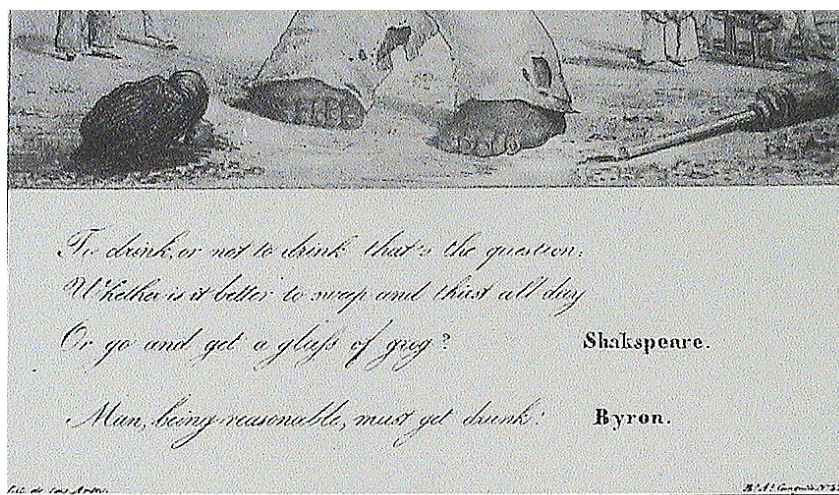 To drink, or not to drink that's the question:
Whether is it better to sweep and thirst all day
Or go and get a glass of grog?
Shakspeare.
Man, being reasonable, must get drunk!
Byron.
Lit. de las Artes.